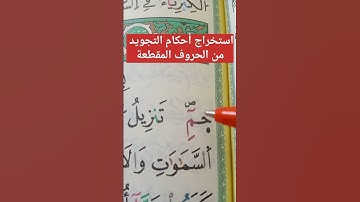 الْكِبْرِيَاءُ فِي
استخراج أحكام التجويد
من الحروف المقطعة
حمٓ تَنزِيلُ
السَّمَٰوَٰتِ وَالَا